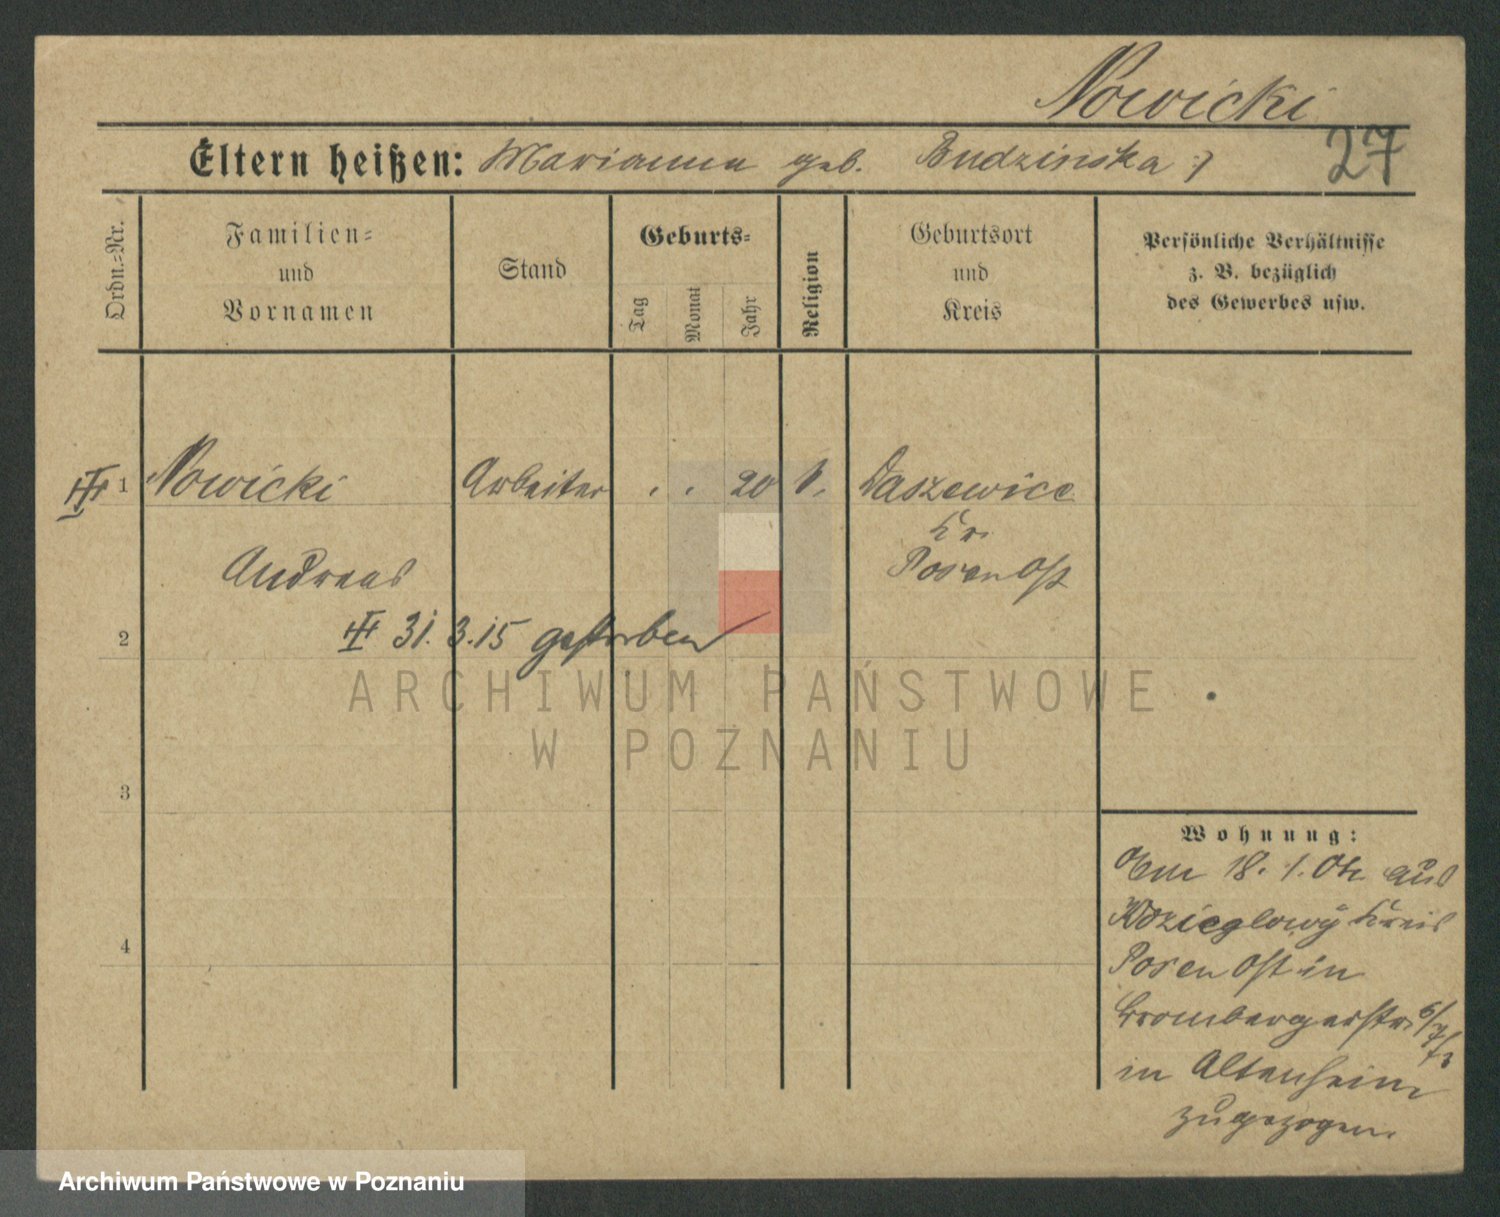 Nowicki
Eltern heißen: Marianna geb. Budzinska
27
Ordn.-Nr.
Familien-
und
Vornamen
Stand
Geburts-
Tag
Monat
Jahr
Religion
Geburtsort
und
Kreis
Persönliche Verhältnisse
z. B. bezüglich
des Gewerbes usw.
1 Nowicki Arbeiter . . 20 Daszewice
Kr.
Andreas Posen Ost
2 31.3.15 gestorben
ARCHIWUM PAŃSTWOWE
W POZNANIU
3
4
Wohnung:
18. 1. aus
Kreis
Posen Ost in
Brombergerstr.
in Altenheim
zugezogen.
Archiwum Państwowe w Poznaniu